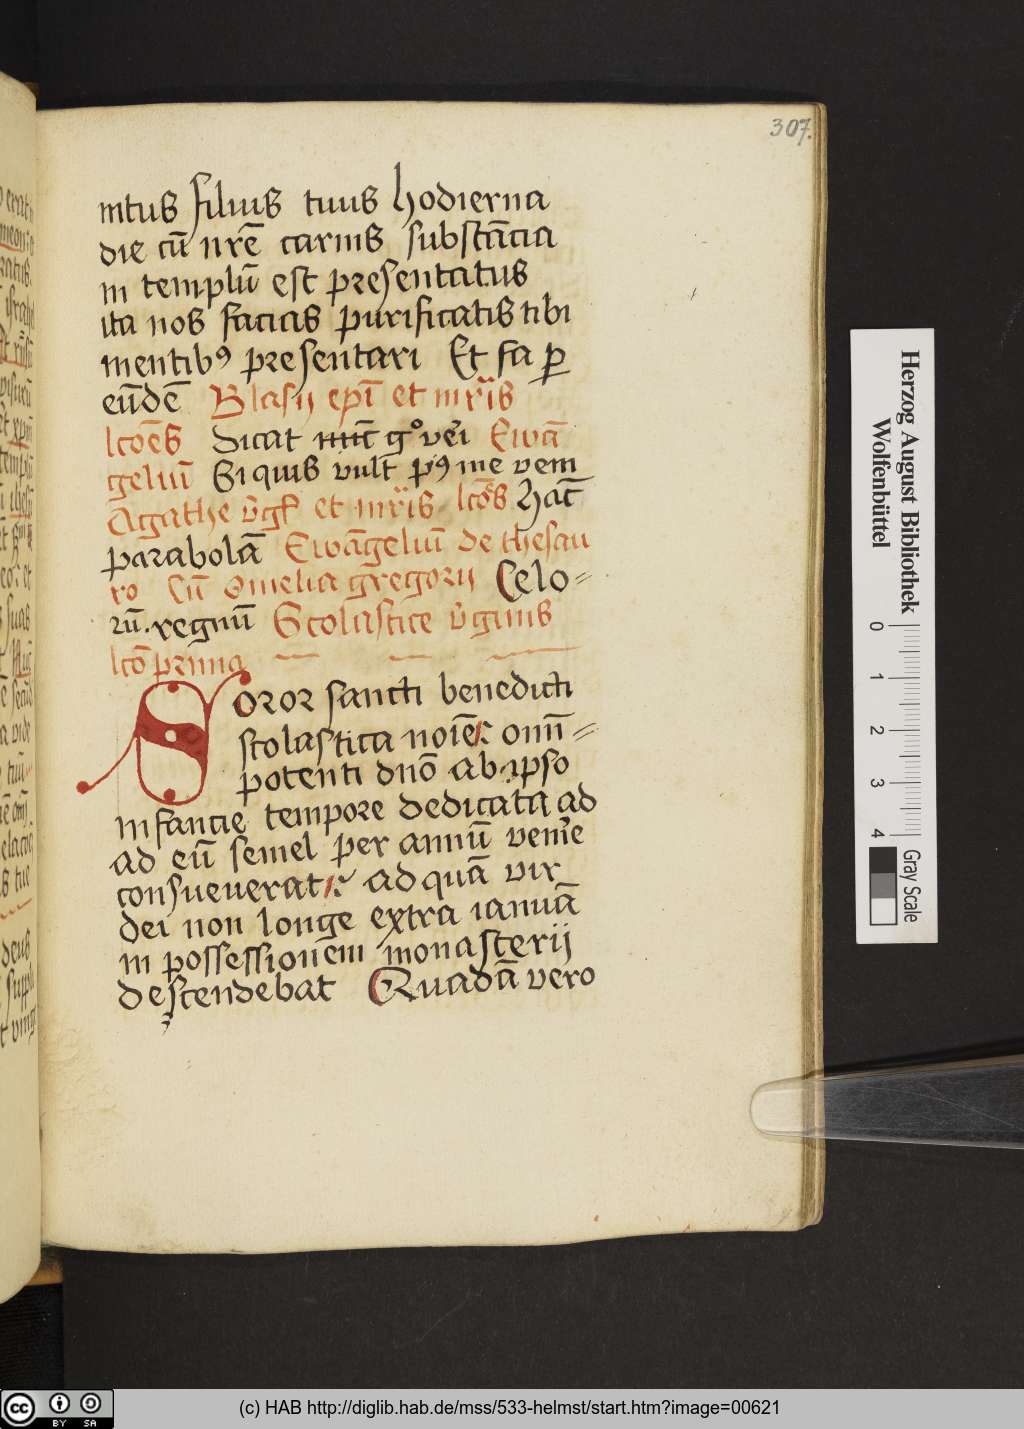 307.
nitus filius tuus hodierna
die cū nrē carnis substācia
in templū est presentatus
ita nos facias purificatis tibi
mentibꝯ presentari Et fa ꝑ
eūdē Blasij epī et mr̄is
lcōes Dicat g° ve'i Ewā
geliū Si quis vult pꝯ me veni
Agathe v̄gī et mr̄is lcōs hāc
parabolā Ewāgeliū de thesau
ro Cū Omelia gregorij Celo⸗
rū. regnū Scolastice v̄ginis
lcō prima
Soror sancti benedicti
scolastica noīe omī⸗
potenti dnō ab ipso
infancie tempore dedicata ad
ad eū semel per annū venīe
consueuerat ad quā vir
dei non longe extra ianuā
in possessionem monasterij
descendebat Quadā vero
Herzog August Bibliothek
Wolfenbüttel
0 1 2 3 4
Gray Scale
cc BY SA
(c) HAB http://diglib.hab.de/mss/533-helmst/start.htm?image=00621